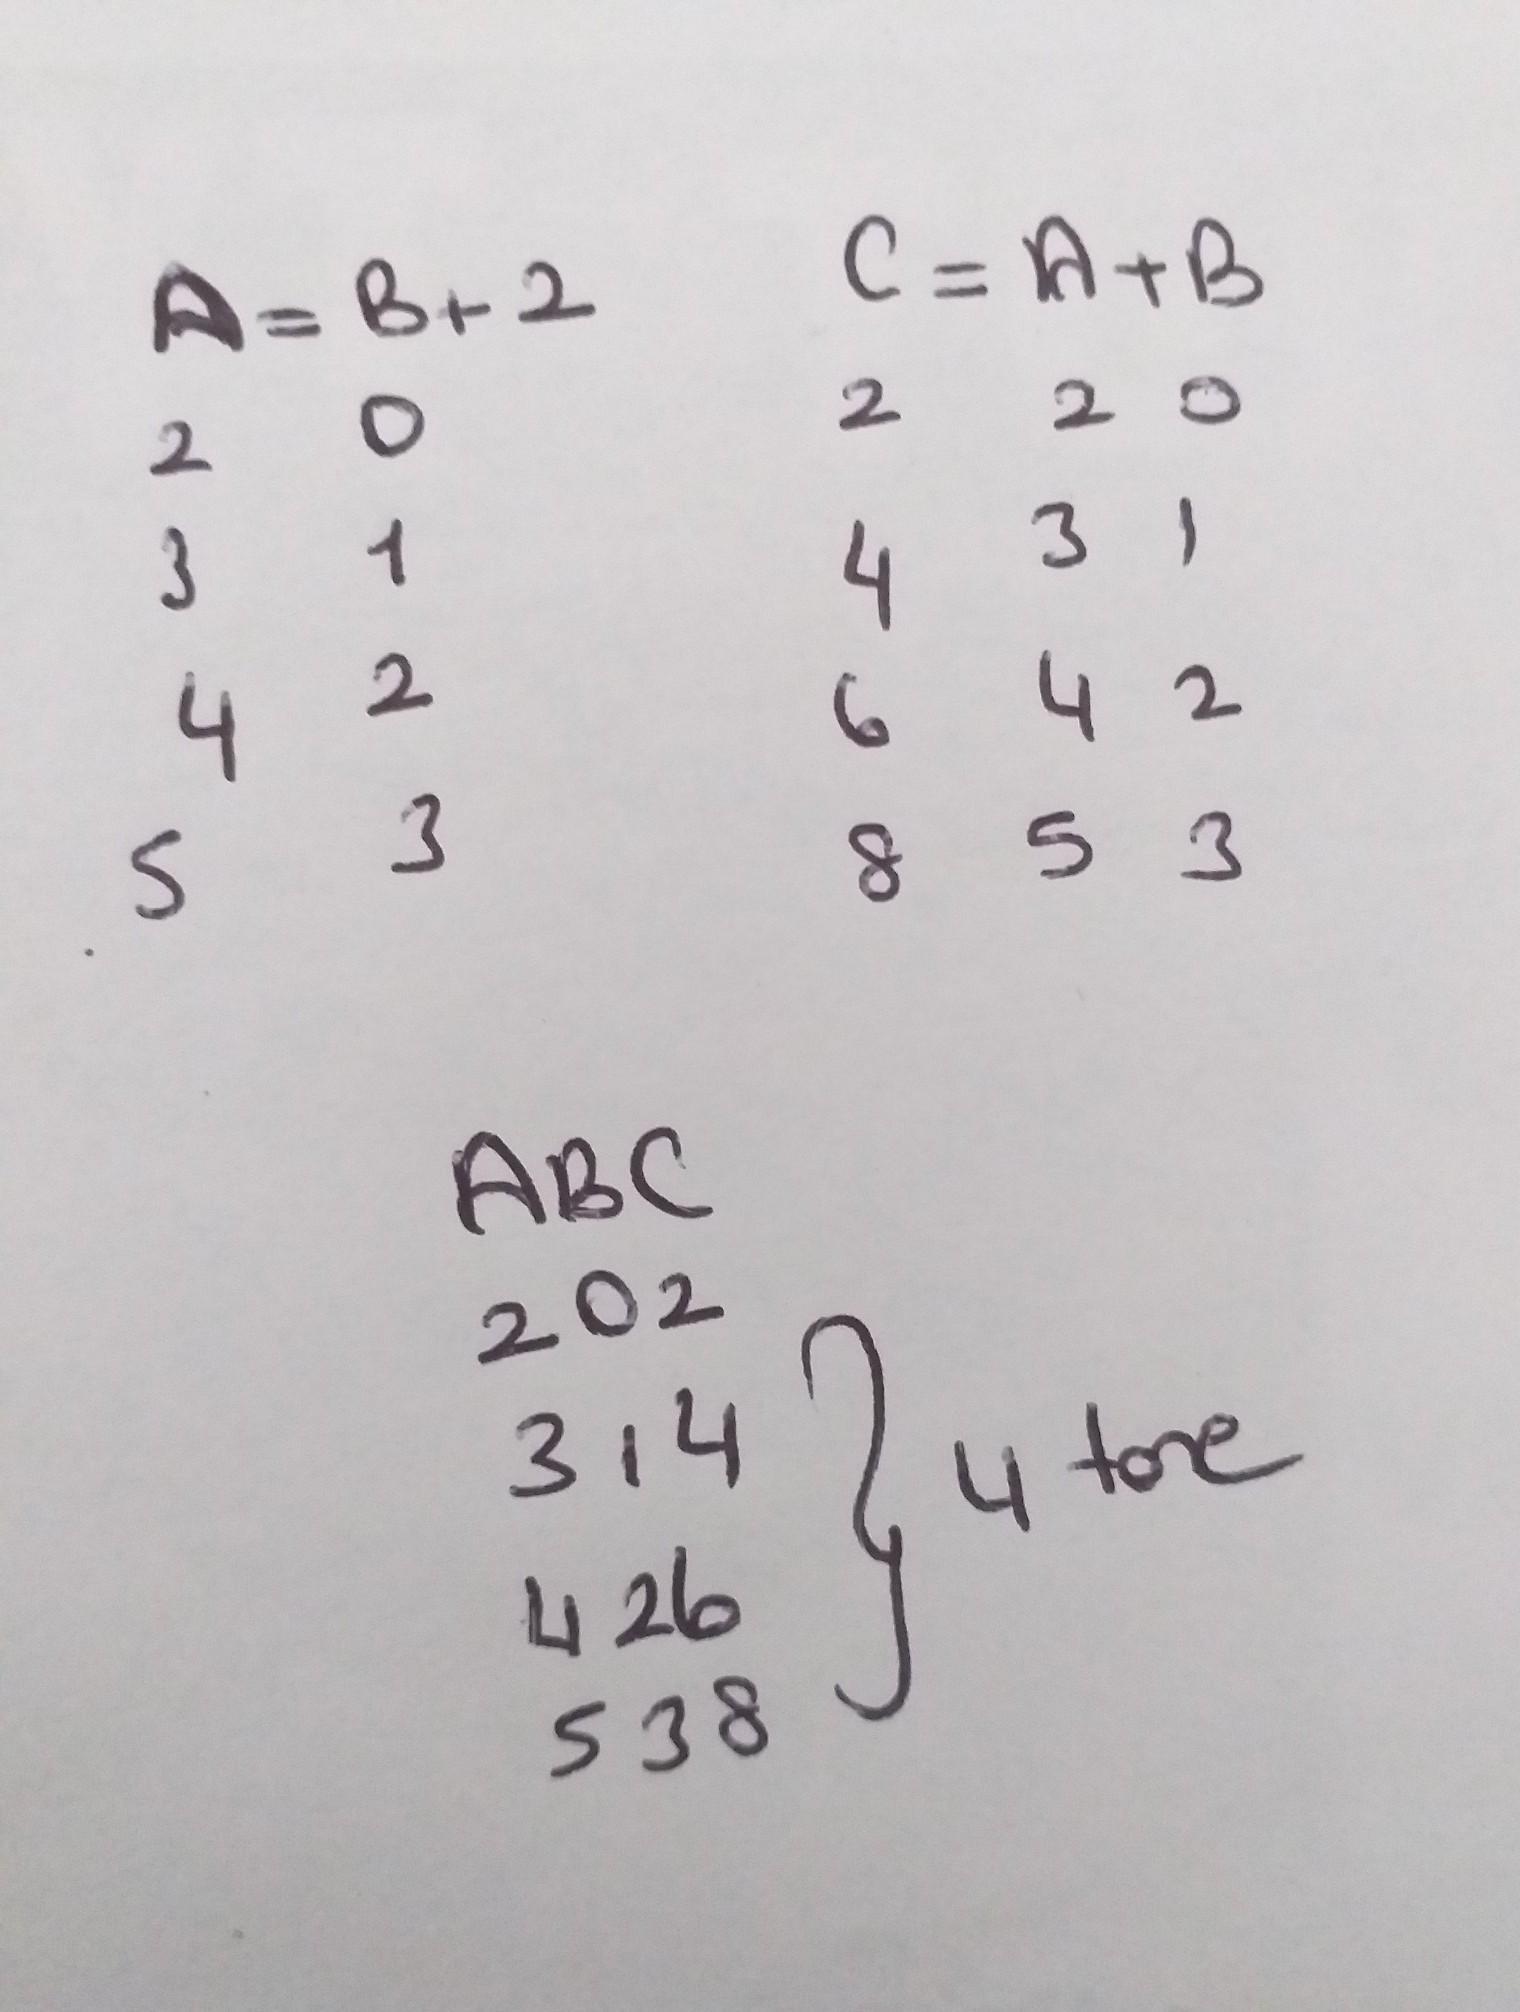 A = B + 2
2 0
3 1
4 2
5 3
C = A + B
2 2 0
4 3 1
6 4 2
8 5 3
ABC
202
314
426
538
4 tane